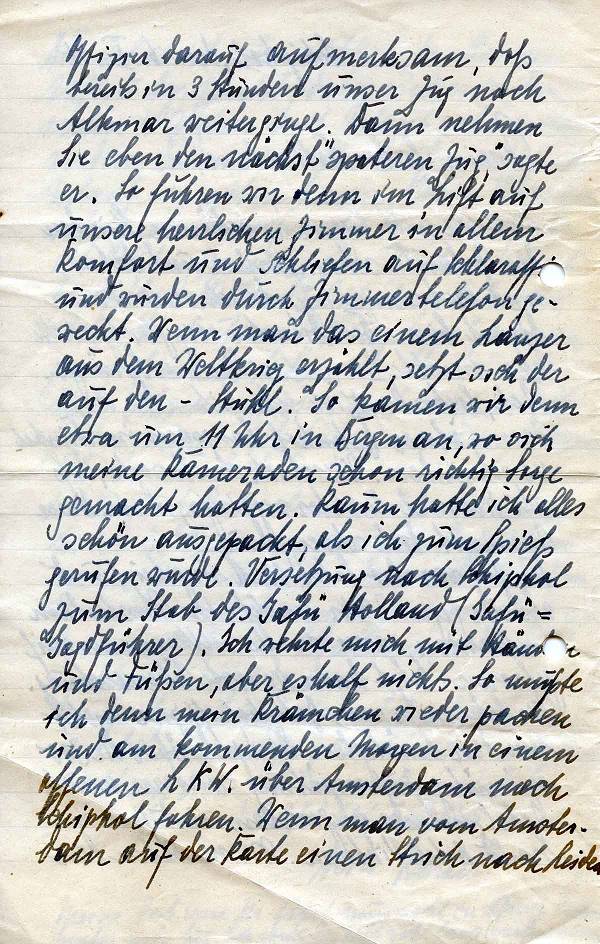 Offizier darauf aufmerksam, daß
bereits in 3 Stunden unser Zug nach
Alkmar weiterginge. Dann nehmen
Sie eben den nächst "späteren Zug", sagte
er. So fuhren wir denn im Lift auf
unsere herrlichen Zimmer in allem
Komfort und schliefen auf Schlaraffi
und wurden durch Zimmertelefon ge-
weckt. Wenn man das einem Landser
aus dem Weltkrieg erzählt, setzt sich der
auf den - Stuhl. So kamen wir denn
etwa um 11 Uhr in Bergen an, wo sich
meine Kameraden schon richtig Sorge
gemacht hatten. Kaum hatte ich alles
schön ausgepackt, als ich zum Spieß
gerufen wurde. Versetzung nach Schiphol
zum Stab des Jafü Holland (Jafü =
Jagdführer). Ich wehrte mich mit Händen
und Füßen, aber es half nichts. So mußte
ich denn mein Krämchen wieder packen
und am kommenden Morgen in einem
offenen LKW. über Amsterdam nach
Schiphol fahren. Wenn man vom Amster-
dam auf der Karte einen Strich nach Leiden